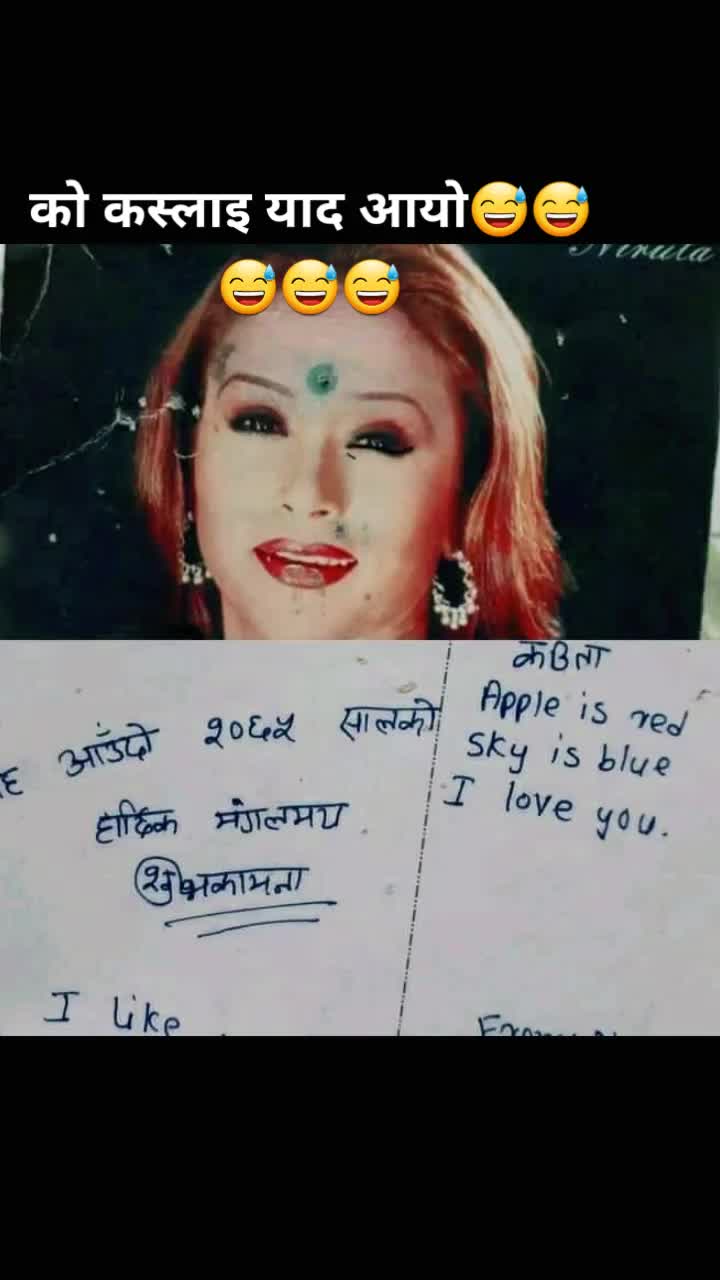 को कस्लाइ याद आयो😅😅
😅😅😅
Niruta
आँउदो २०६५ सालको
हार्दिक मंगलमय
शुभकामना
I like
कविता
Apple is red
Sky is blue
I love you.